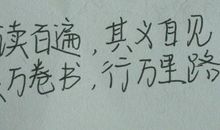 读百遍，其义自见
万卷书，行万里路